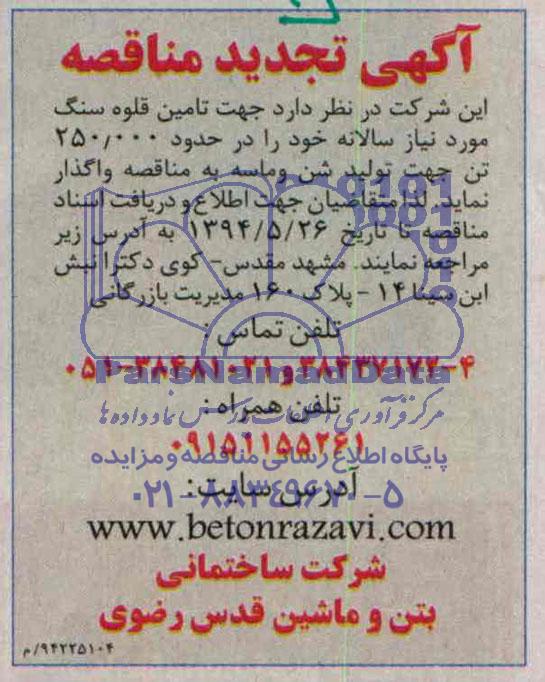 آگهی تجدید مناقصه
این شرکت در نظر دارد جهت تامین قلوه سنگ
مورد نیاز سالانه خود را در حدود ۲۵۰/۰۰۰
تن جهت تولید شن وماسه به مناقصه واگذار
نماید. لذا متقاضیان جهت اطلاع و دریافت اسناد
مناقصه تا تاریخ ۱۳۹۴/۵/۲۶ به آدرس زیر
مراجعه نمایند. مشهد مقدس- کوی دکترا نبش
ابن سینا ۱۴ - پلاک ۱۶۰ مدیریت بازرگانی
تلفن تماس :
۳۸۴۳۷۱۷۲-۴ و ۳۸۴۸۱۰۲۱-۰۵۱
ParsNamadData
تلفن همراه:
مرکز فرآوری اطلاعات پارس نماد داده ها
۰۹۱۵۱۱۵۵۲۶۱
پایگاه اطلاع رسانی مناقصه و مزایده
آدرس سایت:
۰۲۱-۸۸۳۴۹۶۷۰-۵
www.betonrazavi.com
شرکت ساختمانی
بتن و ماشین قدس رضوی
۹۴۲۲۵۱۰۴/م